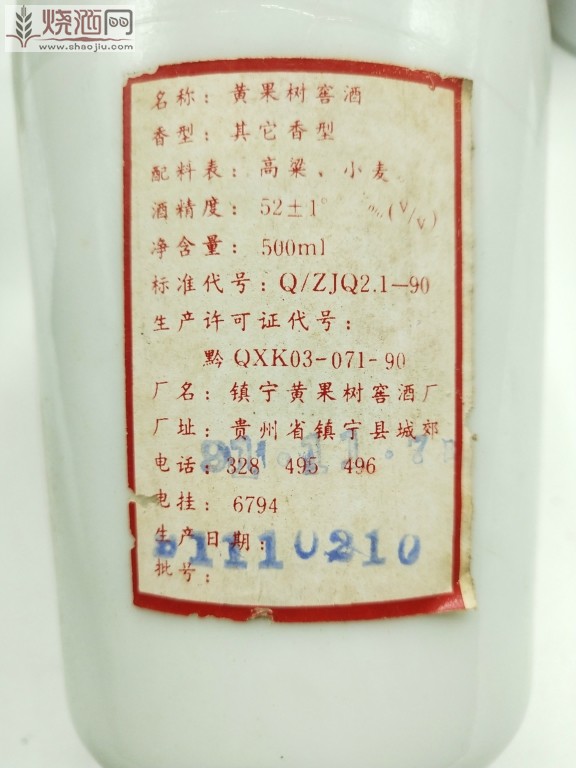 烧酒网
www.shaojiu.com
名称：黄果树窖酒
香型：其它香型
配料表：高粱、小麦
酒精度：52±1° (V/V)
净含量：500ml
标准代号：Q/ZJQ2.1—90
生产许可证代号：
黔QXK03-071-90
厂名：镇宁黄果树窖酒厂
厂址：贵州省镇宁县城郊
电话：328 495 496
电挂：6794
生产日期：
批号：